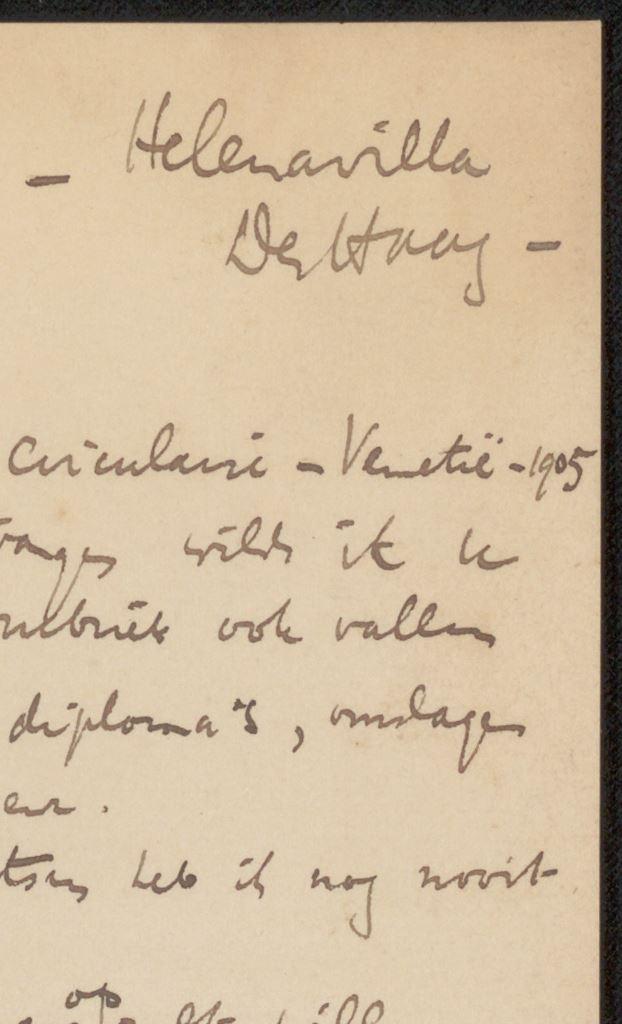 - Helenavilla
Den Haag -
circulaire - Venetië - 1905
wilde ik u
rubriek ook vallen
diploma's, omslagen
enz.
heb ik nog nooit
op